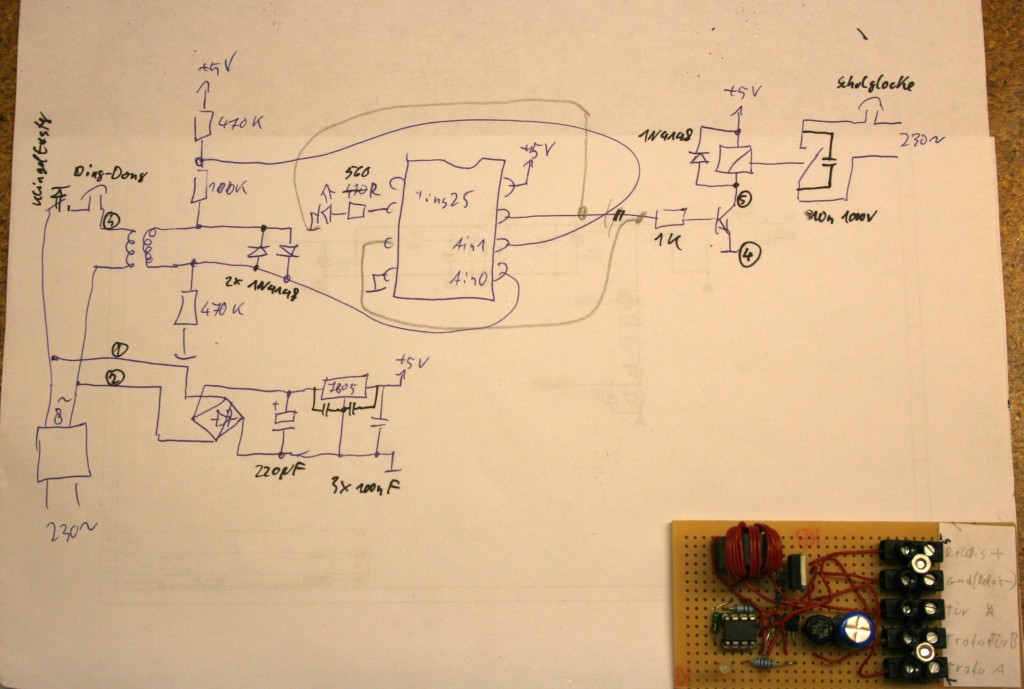 +5V
470K
100K
Klingeltaster
Ding-Dong
3
2x 1N4148
470K
1
2
8~
230~
+5V
7805
220µF
3x 100nF
560
470R
Tiny25
Ain1
Ain0
+5V
1K
1N4148
+5V
5
4
10n 1000V
Schulglocke
230~
Relais +
Gnd(Relais-)
Tür A
Trafo Tür B
Trafo A